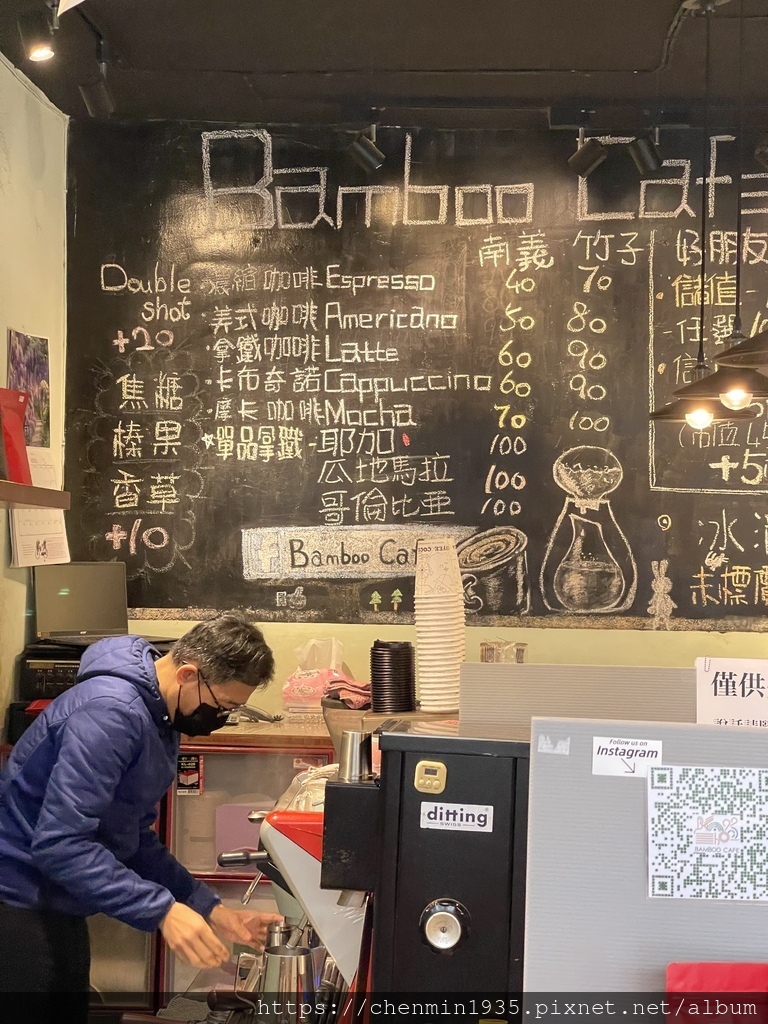 Bamboo Cafe
南義 竹子
Double shot +20
濃縮咖啡 Espresso 40 70
美式咖啡 Americano 50 80
拿鐵咖啡 Latte 60 90
卡布奇諾 Cappuccino 60 90
摩卡咖啡 Mocha 70 100
單品拿鐵 - 耶加 100
瓜地馬拉 100
哥倫比亞 100
焦糖
榛果
香草
+10
Bamboo Caf
好朋友
儲值 -
- 任選
+5
冰
未標價
僅供
Follow us on
Instagram
BAMBOO CAFE
ditting
SWISS
https://chenmin1935.pixnet.net/album